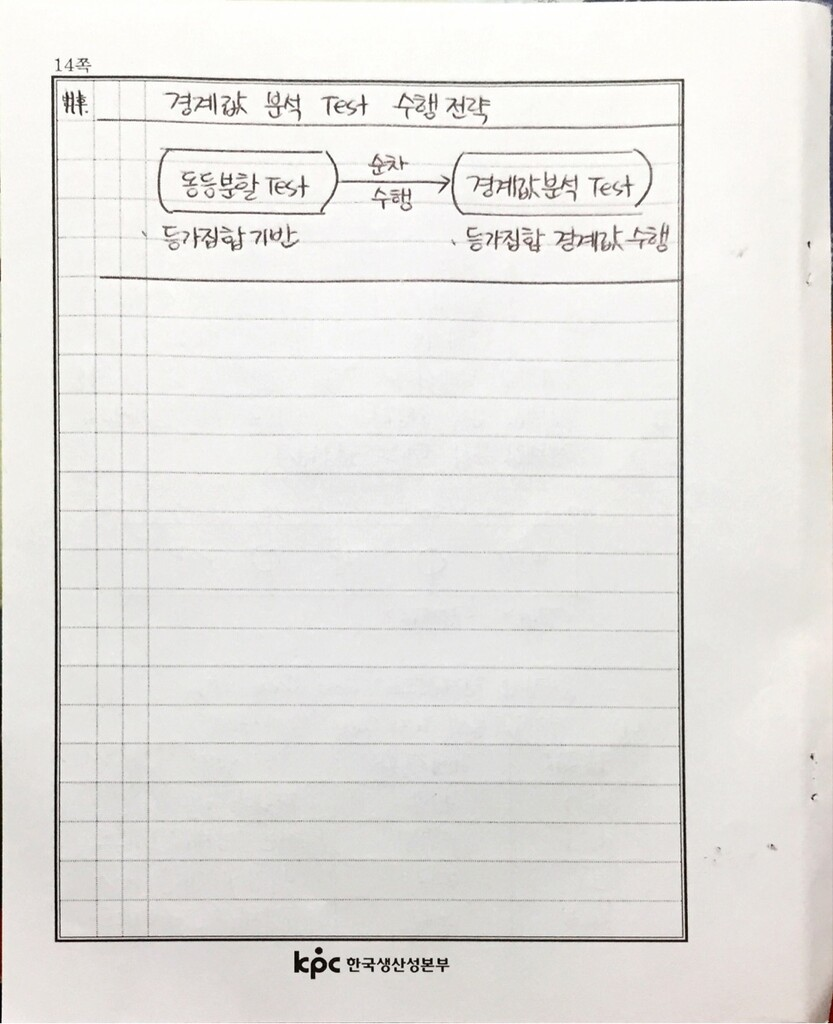 14쪽
경계값 분석 Test 수행 전략
동등분할 Test
순차
수행
경계값분석 Test
、등가집합 기반
、등가집합 경계값 수행
kpc 한국생산성본부